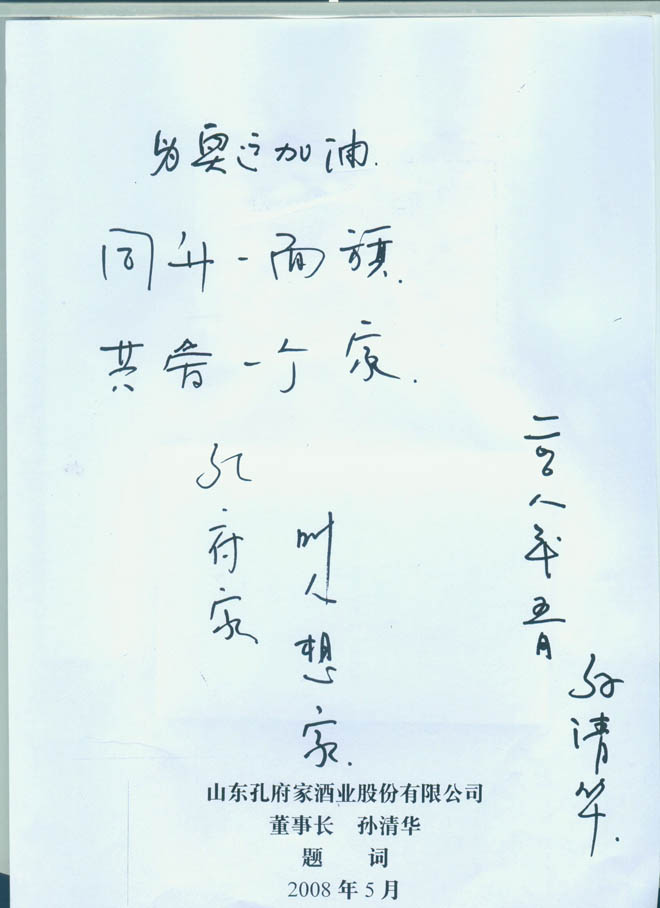 为奥运加油.
同升一面旗.
共爱一个家.
孔府家
叫人想家.
二〇〇八年五月
孙清华.
山东孔府家酒业股份有限公司
董事长 孙清华
题 词
2008 年 5 月